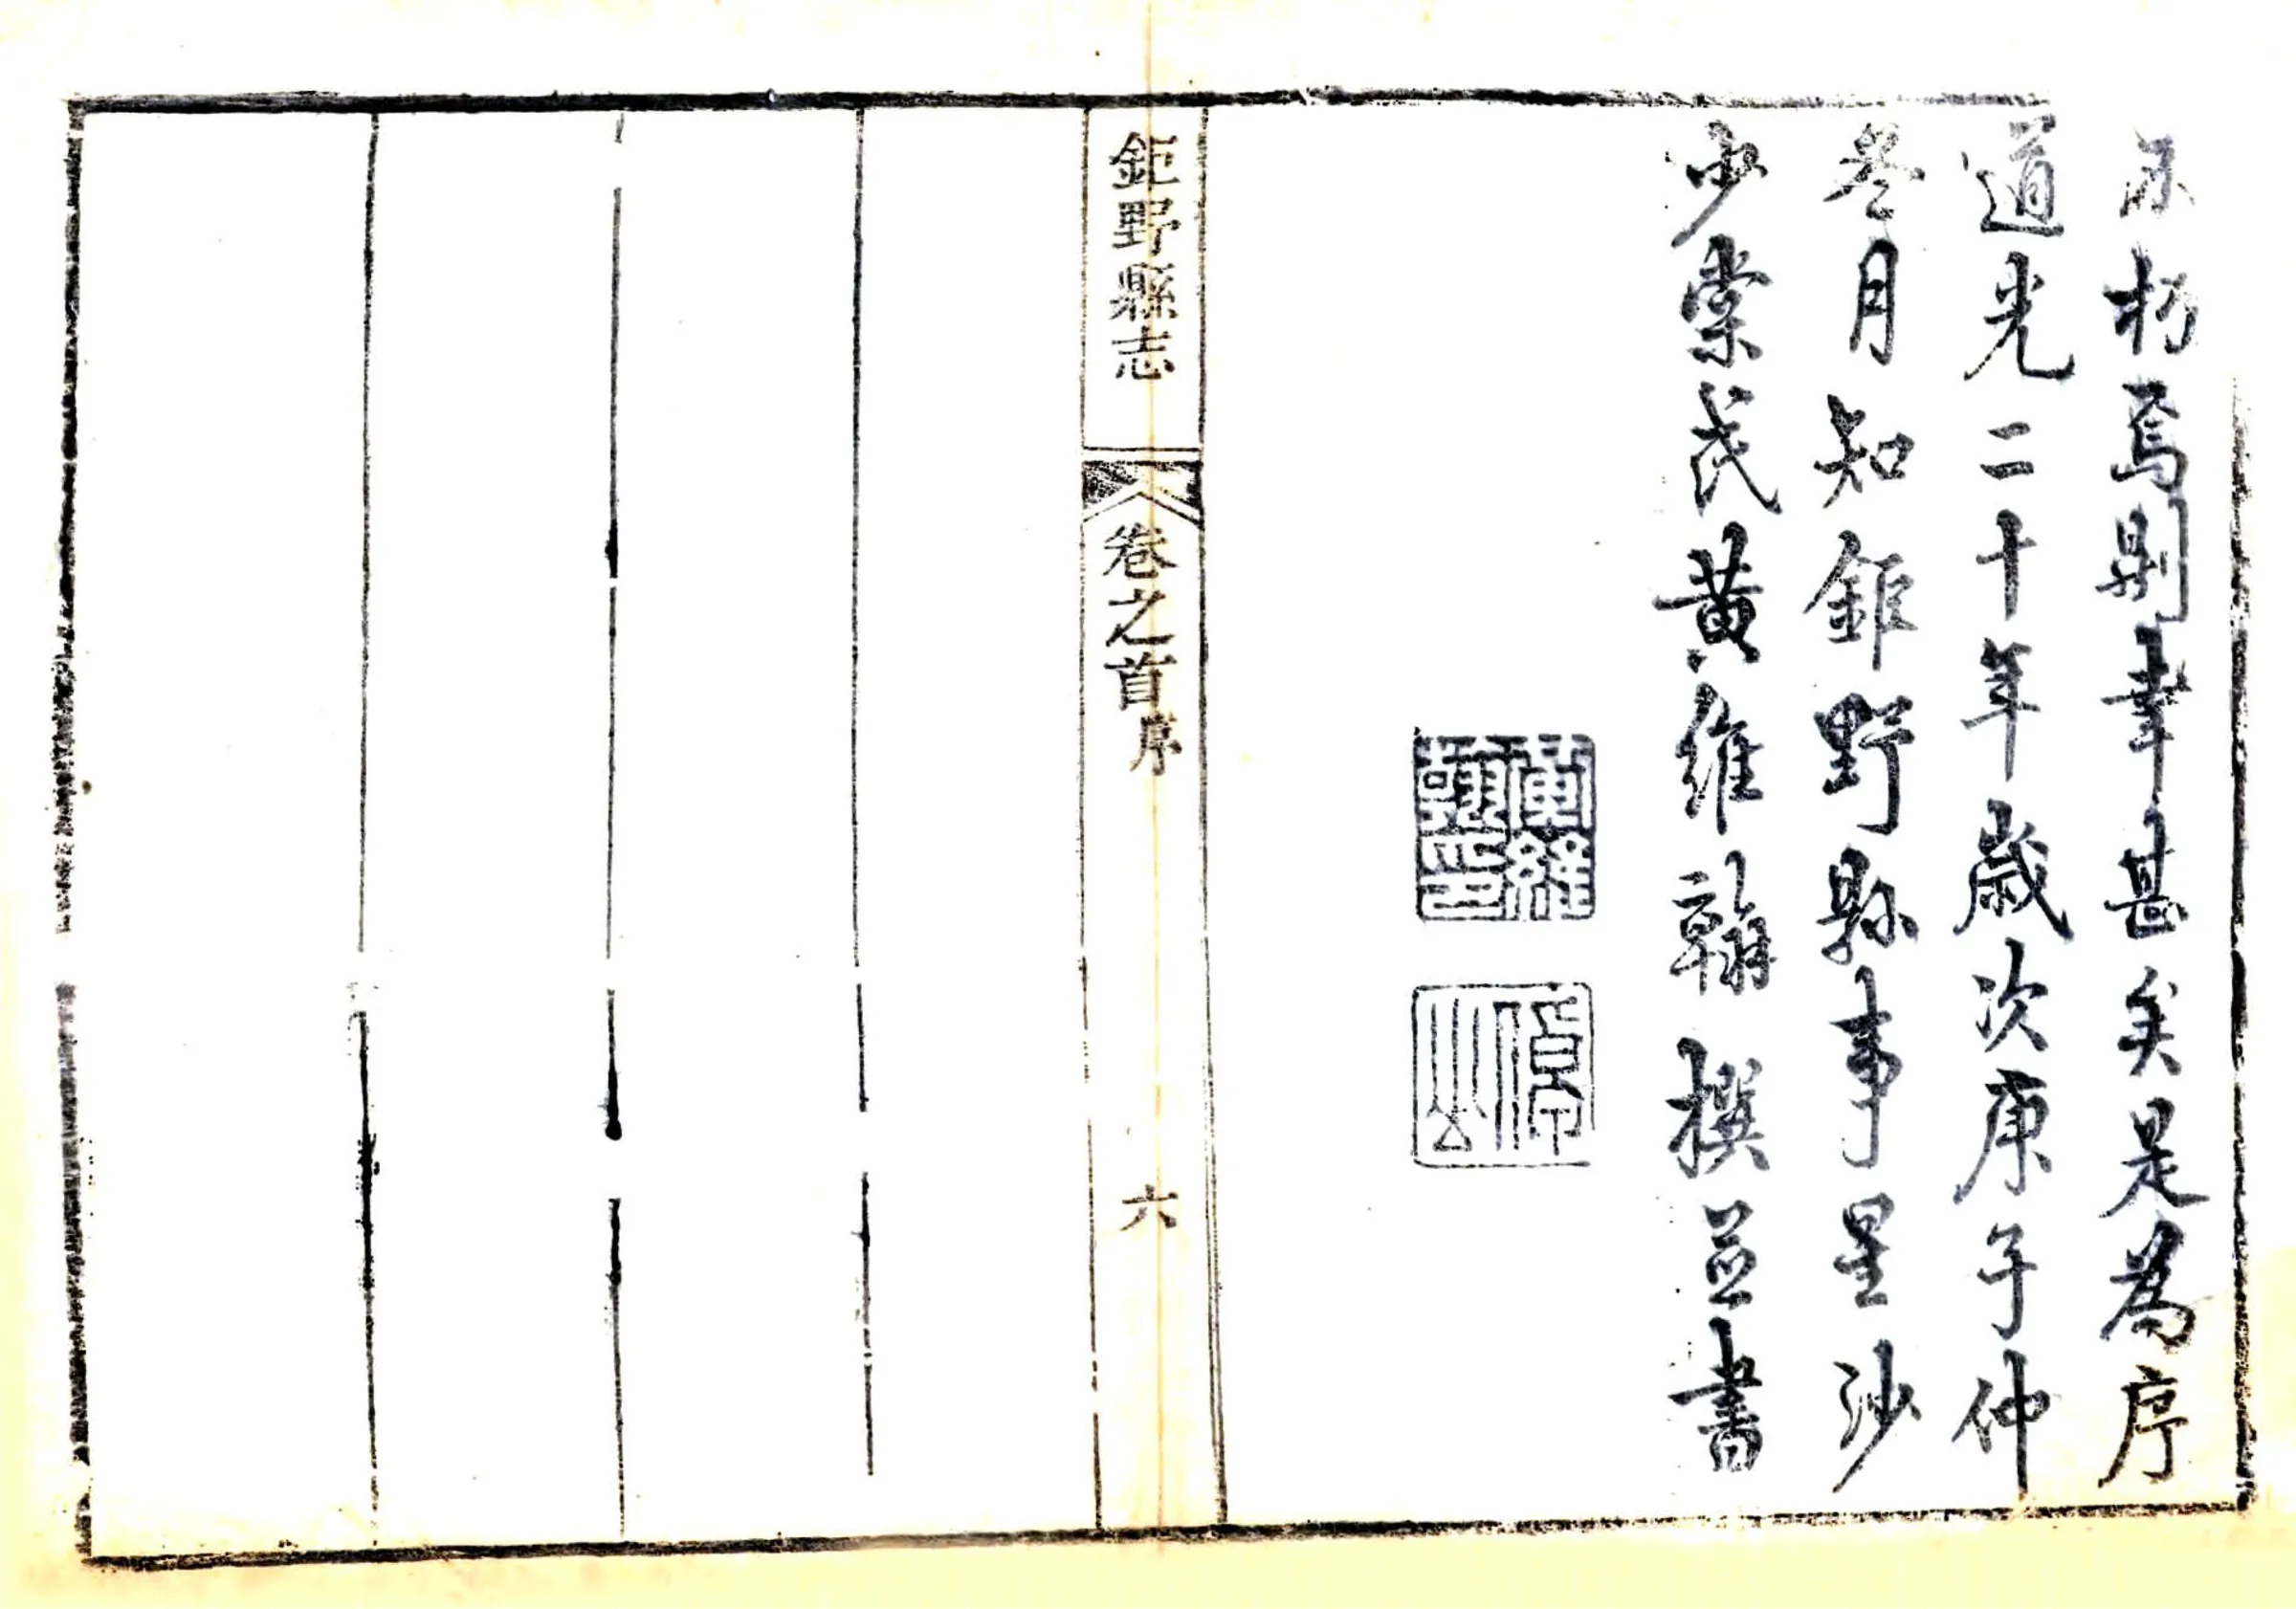 不朽焉則幸甚矣是為序
道光二十年歲次庚子仲
冬月知鉅野縣事星沙
少棠氏黃維翰撰並書
黃維翰印
鉅野縣志 卷之首 序 六